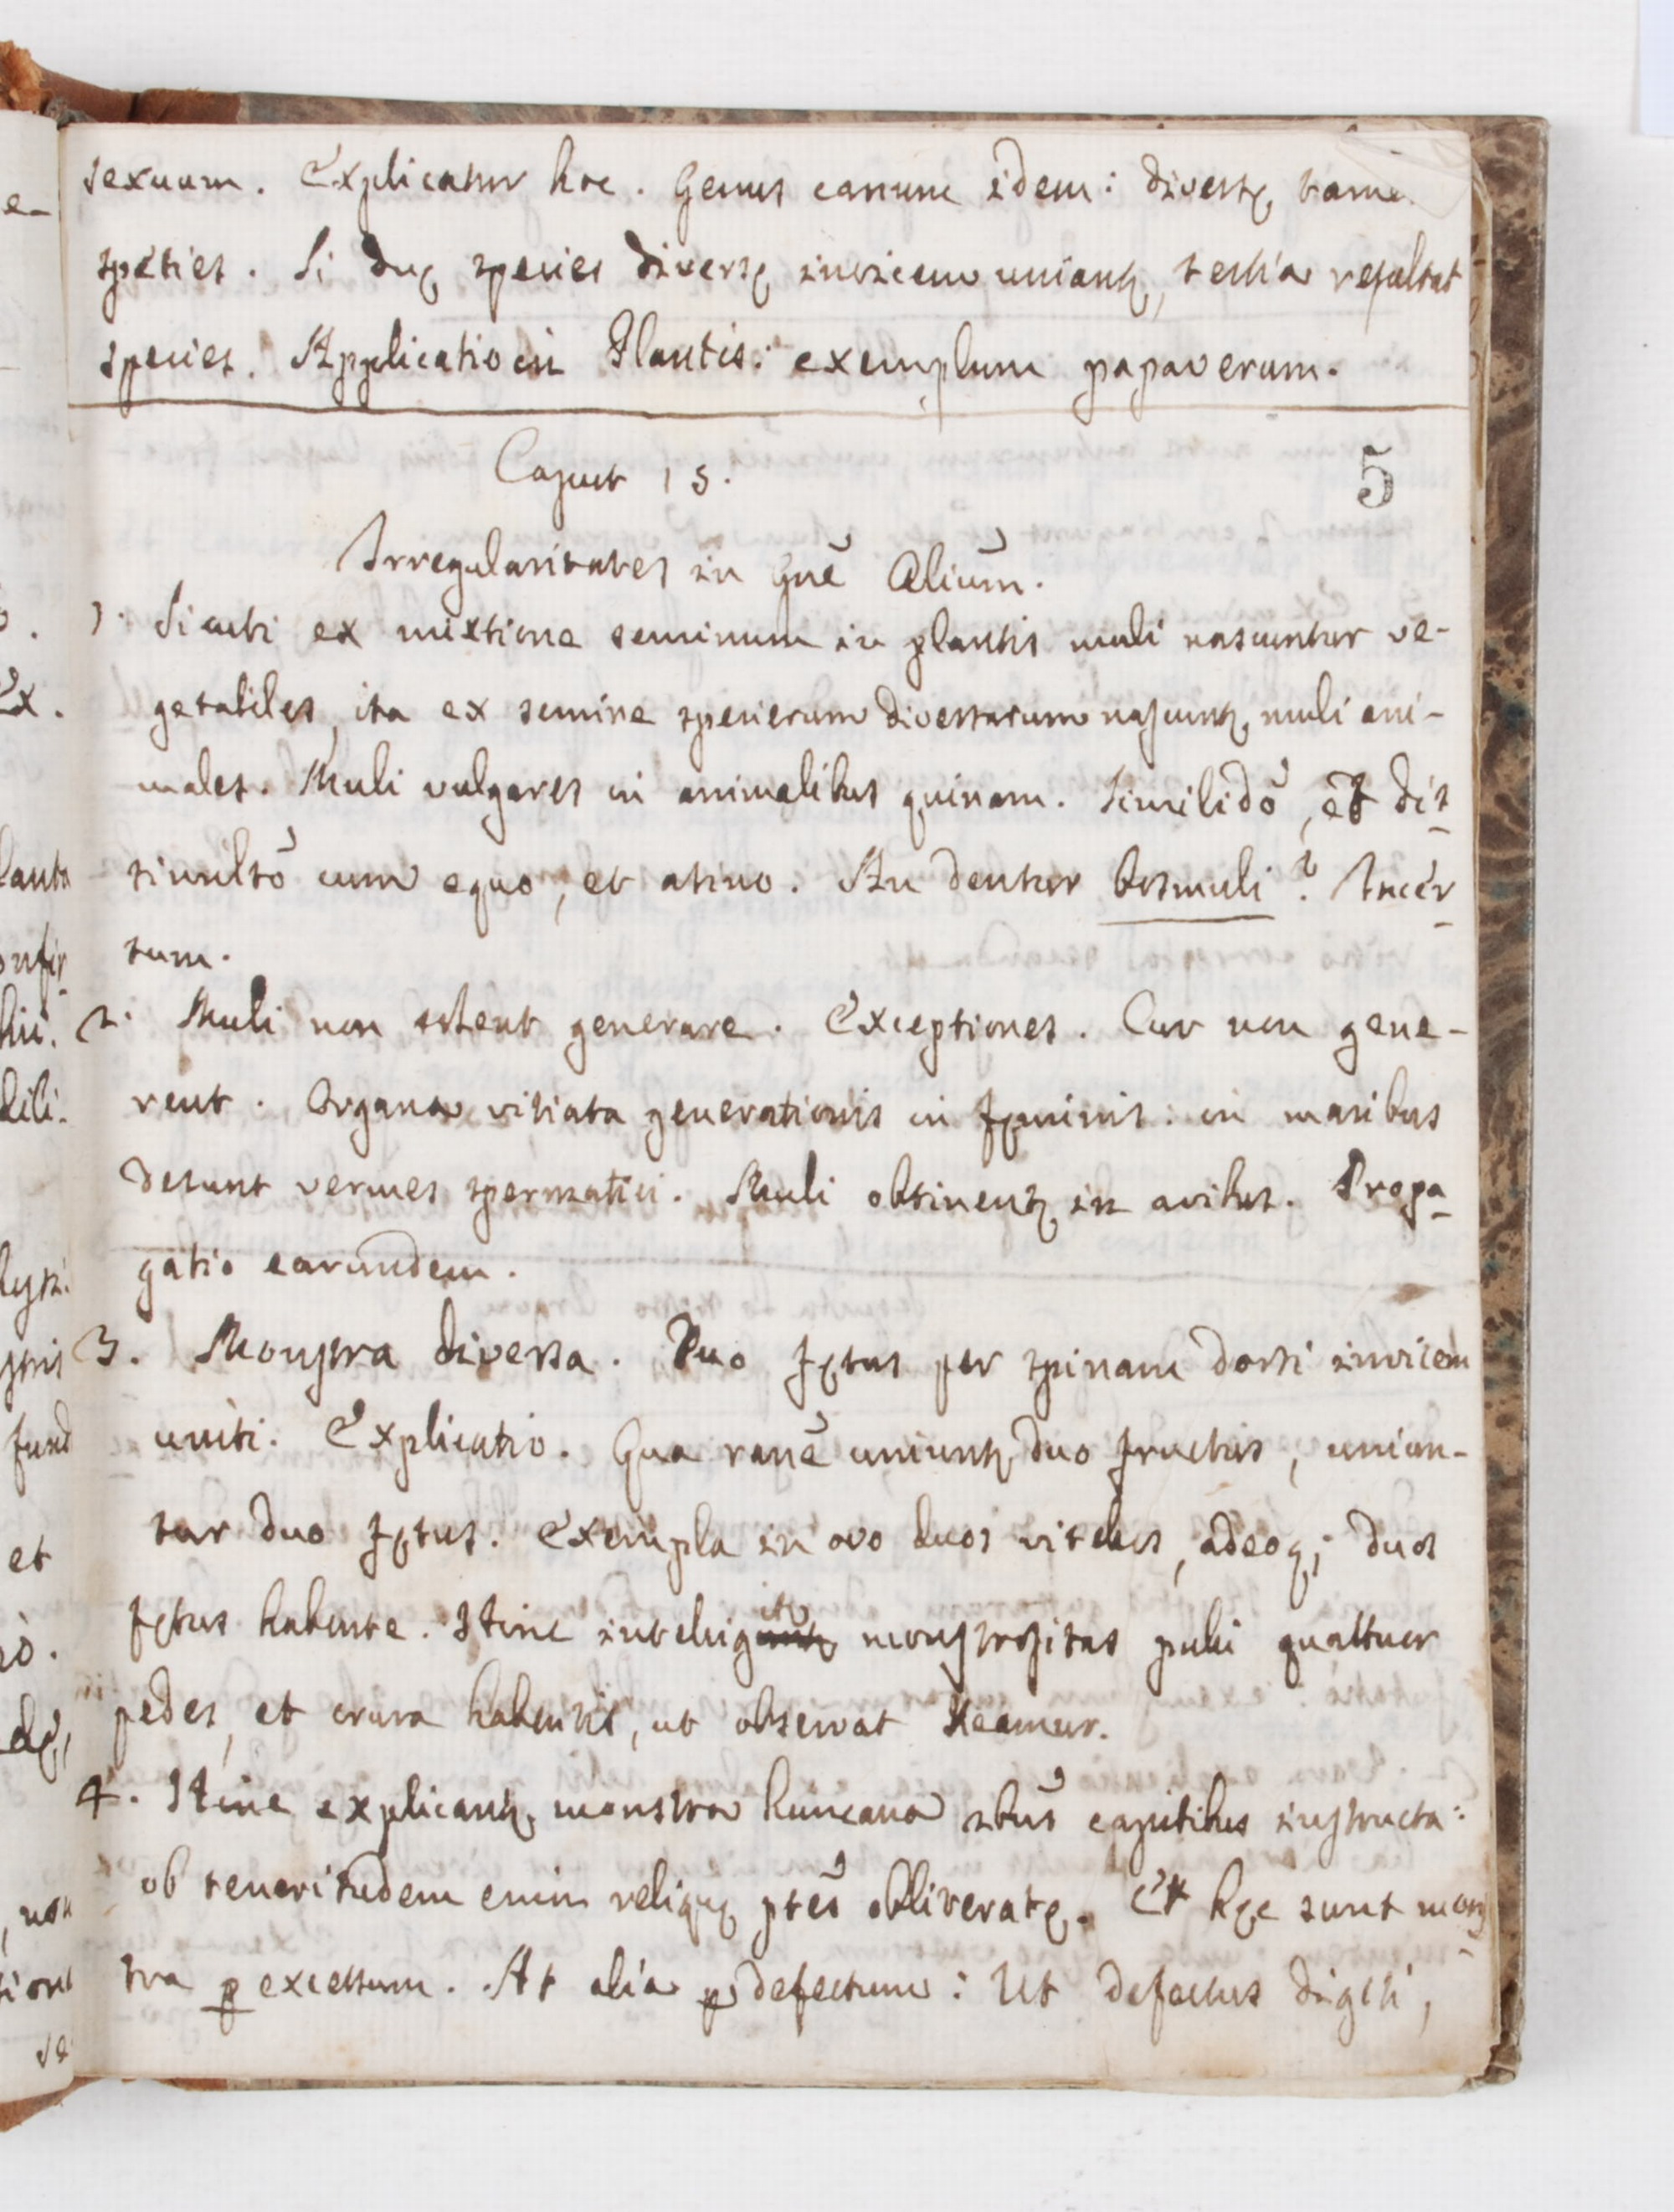 sexuum. Explicatur hoc. Genus canum idem: diversę tame
species. Si duę species diversę invicem uniantʒ, tertia resultat
species. Applicatio in Plantis: exemplum papaverum.
Caput 15.
5
Irregularitates in Gnē Alium̄.
1. Sicuti ex mixtione seminum in plantis muli nascuntur ve-
getabiles, ita ex semine specierum diversarum nascuntʒ muli ani-
males. Muli vulgares in animalibus quinam. Similidō, et dis
similtō cum equo, et asino. An dentur bosmuli? Incer
tum.
2. Muli non solent generare. Exceptiones. Cur non gene-
rent. Organa vitiata generationis in fęminis: in maribus
desunt vermes spermatici. Muli obtinentʒ in avibus. Propa
gatio earundem.
3. Monstra diversa. Duo fętus per spinam dorsi invicem
uniti. Explicatio. Qua ranē uniuntʒ duo fructus, uniun-
tur duo fętus. Exempla in ovo duos vitellos, adeoq; duos
fętus habente. Hinc intelligitʒ monstrositas pulli quattuor
pedes, et crura habentis, ut observat Reamur.
4. Hinc explicantʒ monstra humana 2bus capitibus instructa:
ob teneritudem enim reliquę ptes obliteratę. Et hęc sunt mons
tra p excessum. At alia p defectum: Ut defectus digiti,